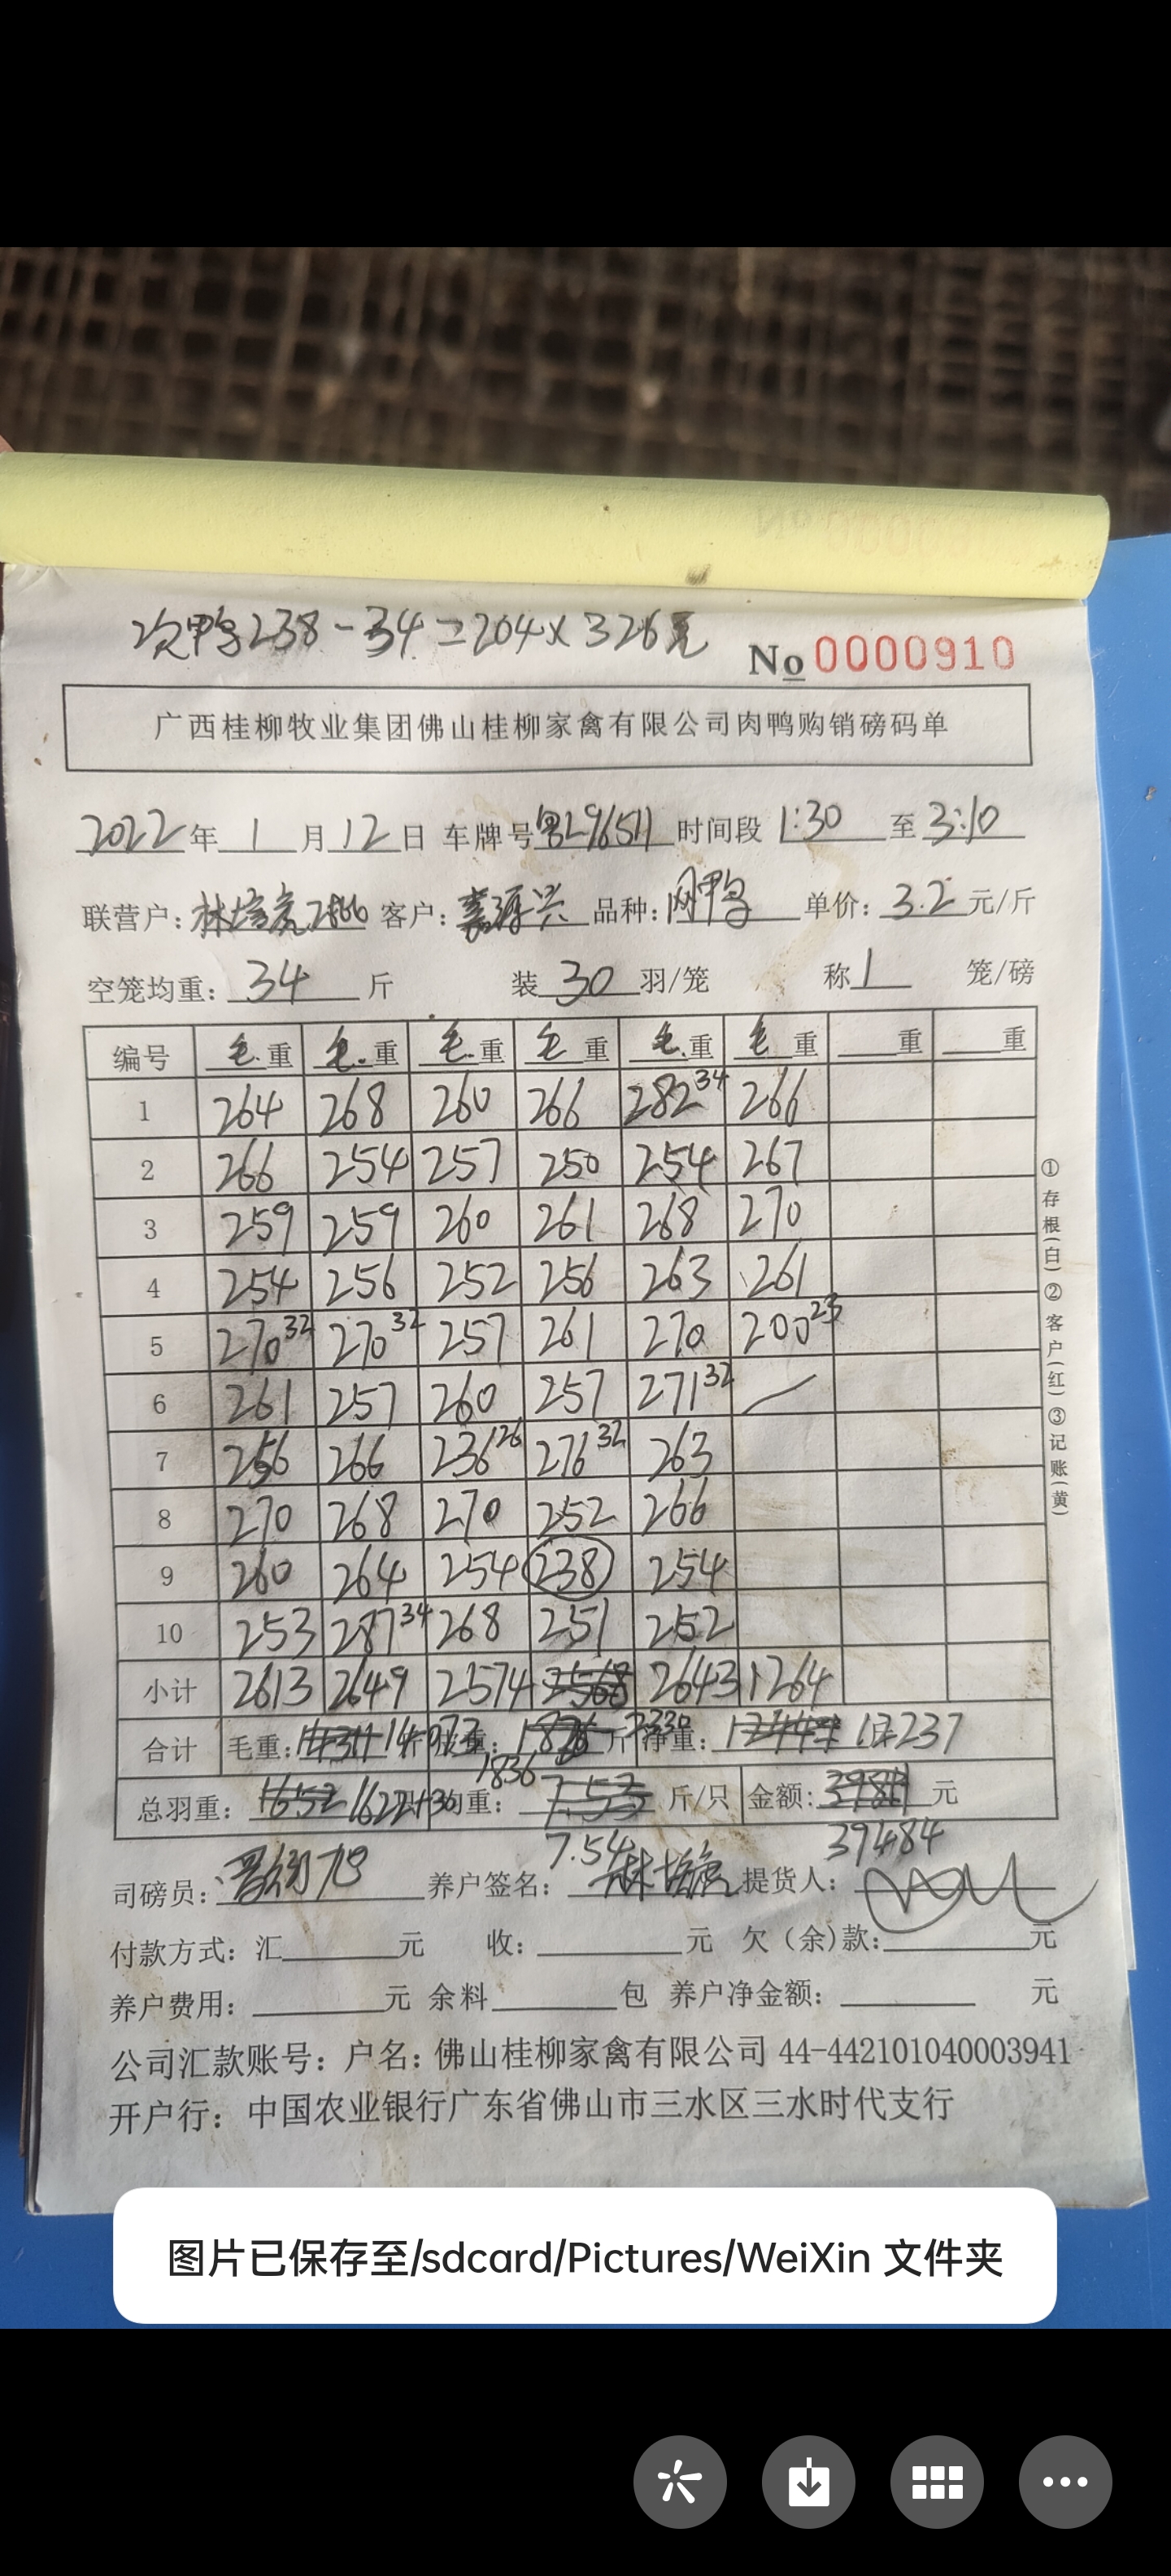 次鸭238-34=204×326元
No 0000910
广西桂柳牧业集团佛山桂柳家禽有限公司肉鸭购销磅码单
2022年1月12日 车牌号粤L96511 时间段1:30至3:10
联营户: 林 客户: 嘉源兴 品种: 网鸭 单价: 3.2元/斤
空笼均重: 34斤 装30羽/笼 称1笼/磅
编号 毛重 毛重 毛重 毛重 毛重 毛重 重 重
1 264 268 260 266 282 34 266
2 266 254 257 250 254 267
3 259 259 260 261 268 270
4 254 256 252 256 263 261
5 270 32 270 32 257 261 270 200 23
6 261 257 260 257 271 32
7 256 266 236 26 276 32 263
8 270 268 270 252 266
9 260 264 254 238 254
10 253 287 34 268 251 252
小计 2613 2649 2574 2568 2643 1264
2330
合计 毛重: 14073 重: 1836 斤 净重: 12237
总羽重: 1652 1622+30 均重: 7.53 斤/只 金额: 元
7.54 39484
司磅员: 养户签名: 林 提货人:
付款方式: 汇 元 收: 元 欠(余)款: 元
养户费用: 元 余料 包 养户净金额: 元
公司汇款账号: 户名: 佛山桂柳家禽有限公司 44-442101040003941
开户行: 中国农业银行广东省佛山市三水区三水时代支行
①存根(白)②客户(红)③记账(黄)
图片已保存至/sdcard/Pictures/WeiXin 文件夹